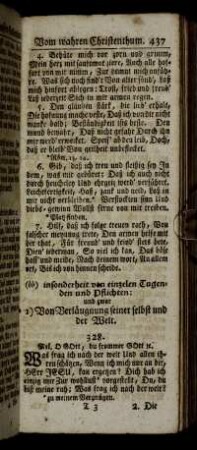 Vom wahren Christenthum. 437
4. Behüte mich vor zorn und grimm,
Mein herz mit sanftmut ziere, Auch alle hof-
fart von mir nimm, Zur demut mich
Was sich noch find't Von alter sünd, Laß
mich hinfort ablegen: Trost, fried und freud'
Laß iederzeit Sich in mir armen regen.
5. Den glauben stärk, die lieb' erhalt,
Die hofnung mache veste, Daß ich
wank' bald; Beständigkeit ist's beste. Den
mund bewahr, Daß nicht gefahr Durch ihn
mir werd' erwecket. Speis' ab den leib, Doch,
daß er bleib' Von geilheit unbeflecket.
* Röm. 13, 14.
6. Gib, daß ich treu und fleißig sey In
dem, was mir gebühret: Daß ich auch nicht
durch heucheley Und ehrgeiz werd' verführet.
Leichtfertigkeit, Haß, zank und neid, Laß in
mir nicht verbleiben.* Verstockten sinn Und
diebs- gewinn Wollst ferne von mir treiben.
* Platz finden.
7. Hilf, daß ich folge treuen rath, Von
falscher meynung trete, Den armen helfe mit
der that, Für freund' und feind' stets bete,
Dien' iederman, So viel ich kan, Das böse
haß und meide, Nach deinem wort, An allem
ort, Bis ich von hinnen scheide.
(bb) insonderheit von einzelen Tugen-
den und Pflichten:
und zwar
1) Von Verläugnung seiner selbst und
der Welt.
328.
Mel. O GOtt, du frommer GOtt ꝛc.
Was frag ich nach der welt Und allen ih-
ren schätzen, Wenn ich mich nur an dir,
HErr JESU, kan ergetzen? Dich hab ich
einzig mir Zur wohllust* vorgestellt, Du, du
bist meine ruh; Was frag ich nach der welt?
* zu meinem Vergnügen.
T 3 2. Die